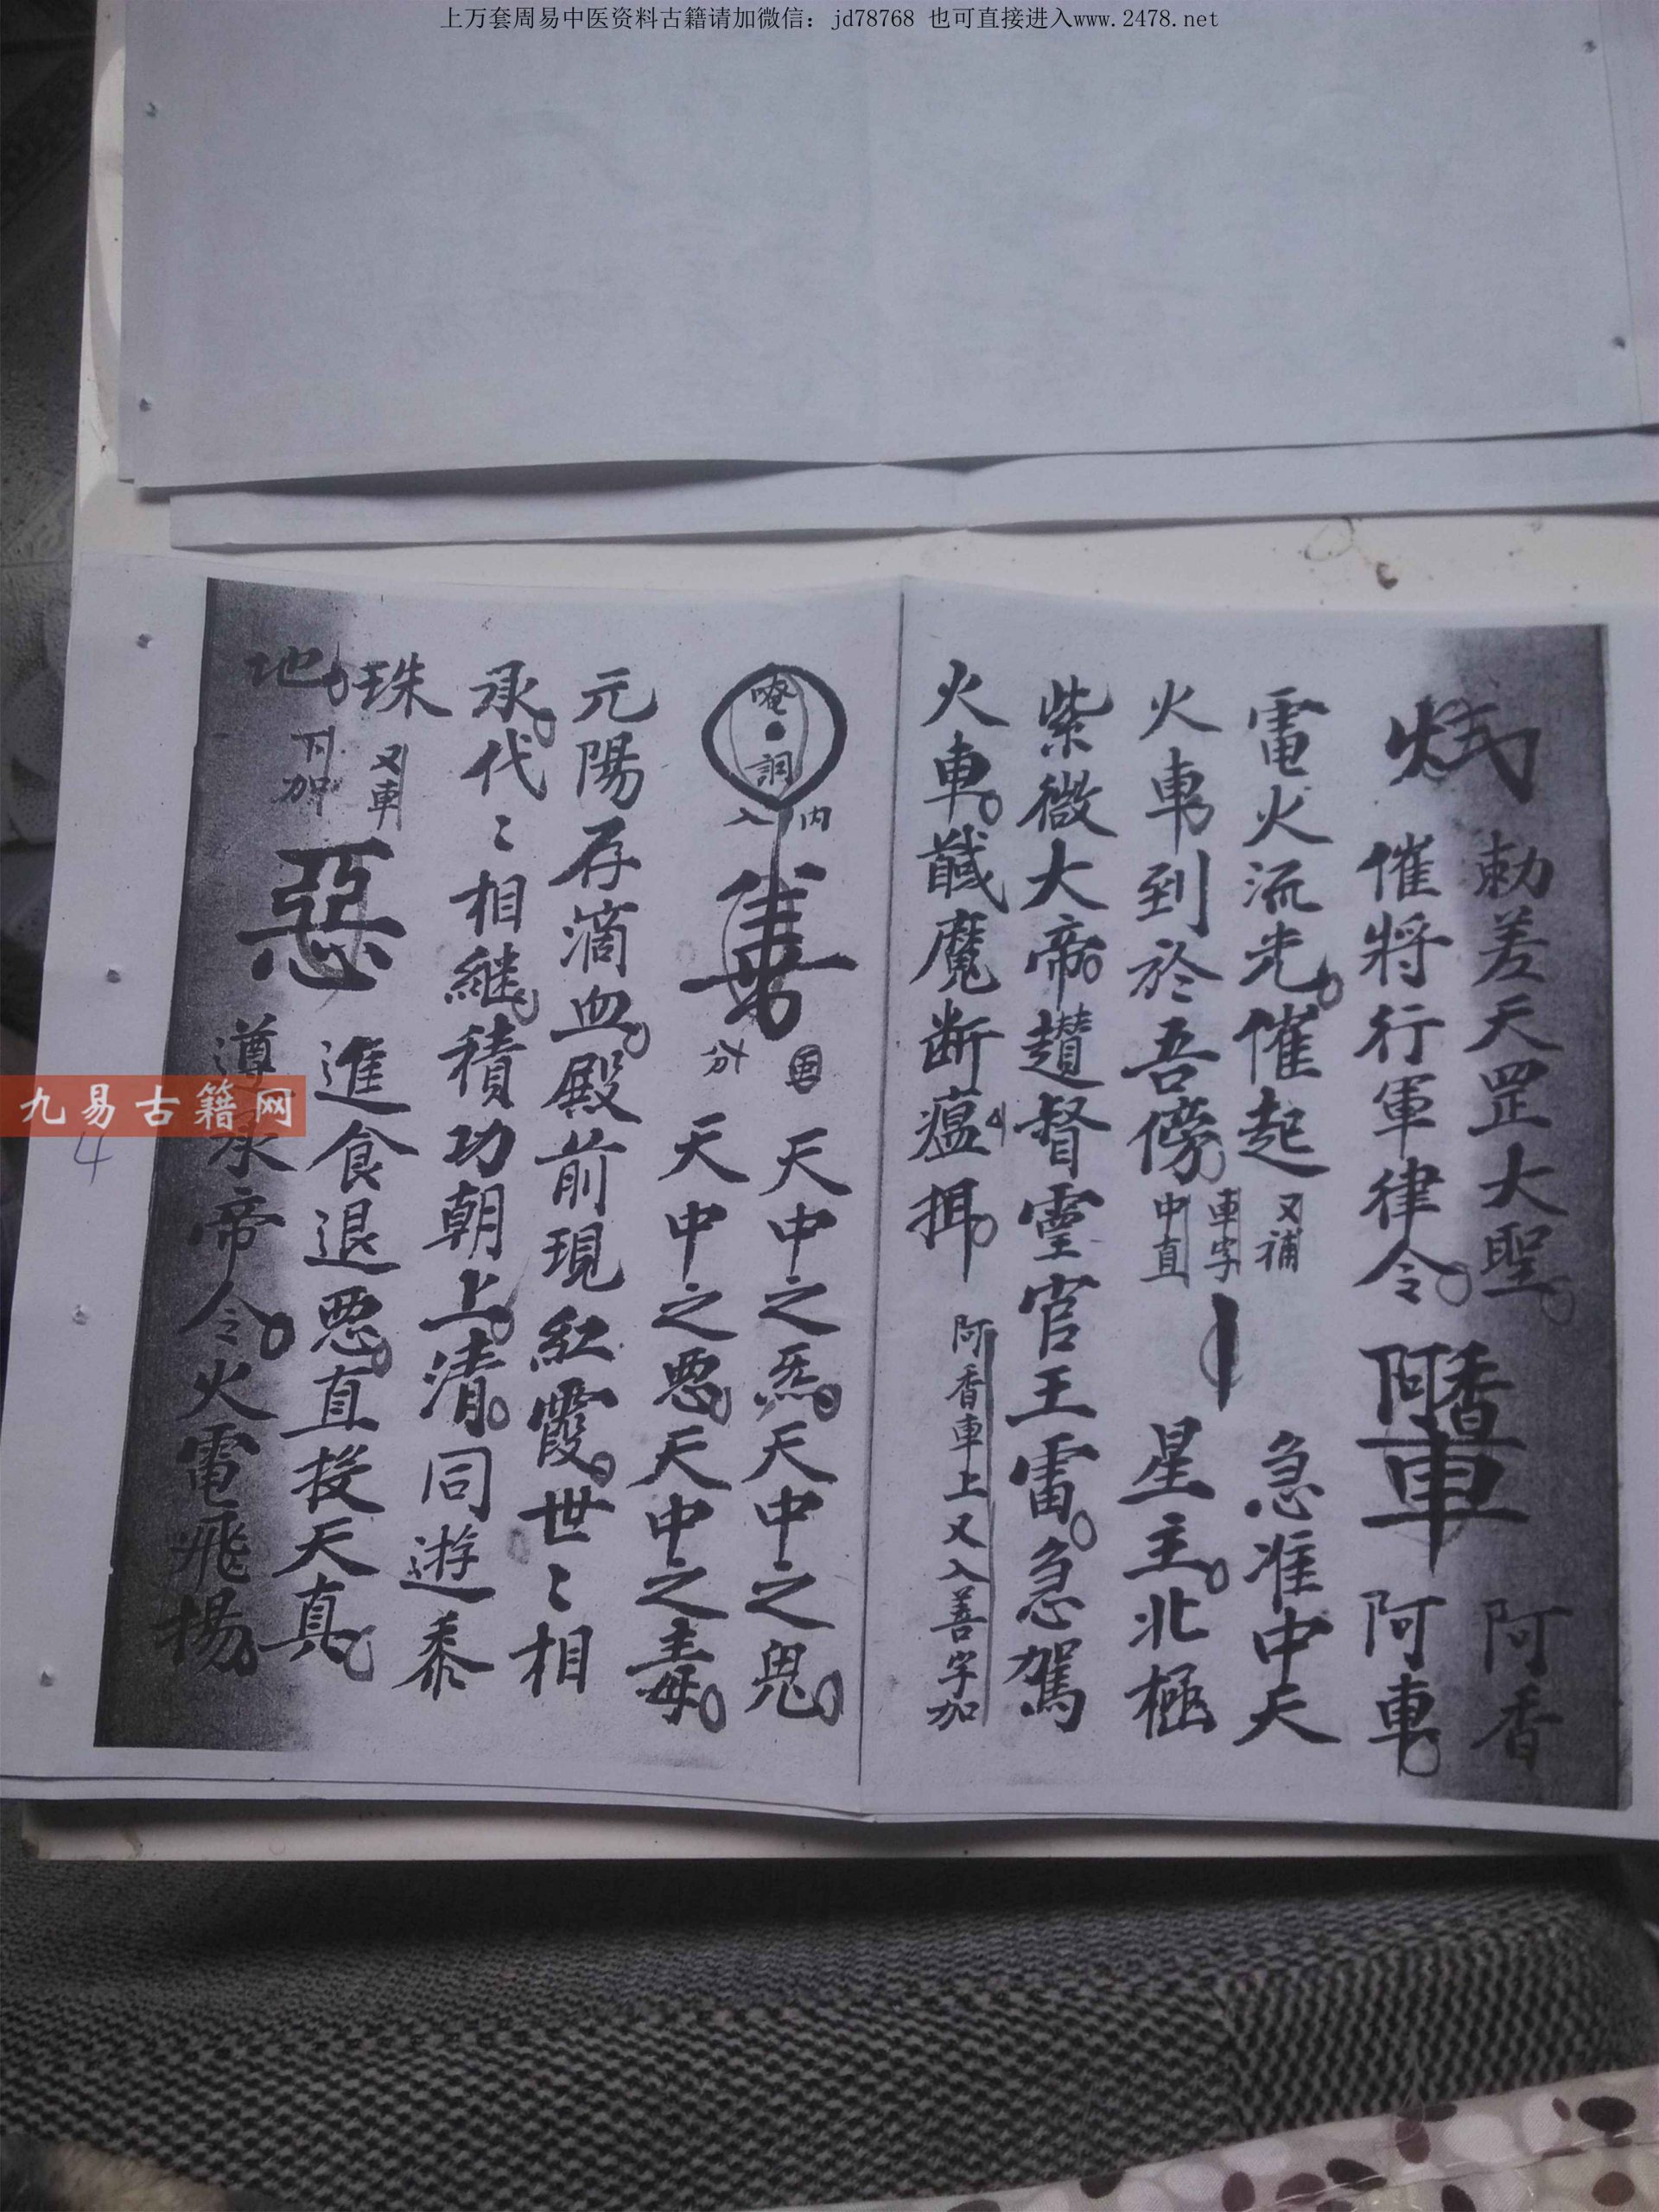 上万套周易中医资料古籍请加微信：jd78768 也可直接进入www.2478.net
勅差天罡大聖
催將行軍律令
阿香
車
阿香
阿車
電火流光催起
火車到於吾傍
又補
車字
中直
急准中天
星主北極
紫微大帝
督霊官王雷急駕
火車馘魔断瘟
阿香車上又入善字加
唵
內
入
天中之炁天中之鬼
天中之悪天中之毒
元陽存滴血殿前現紅霞世〻相
承代〻相継積功朝上清同遊黍
珠
又車
地
下加
惡
進食退悪直授天真
遵承帝令火電飛揚
九易古籍网
4